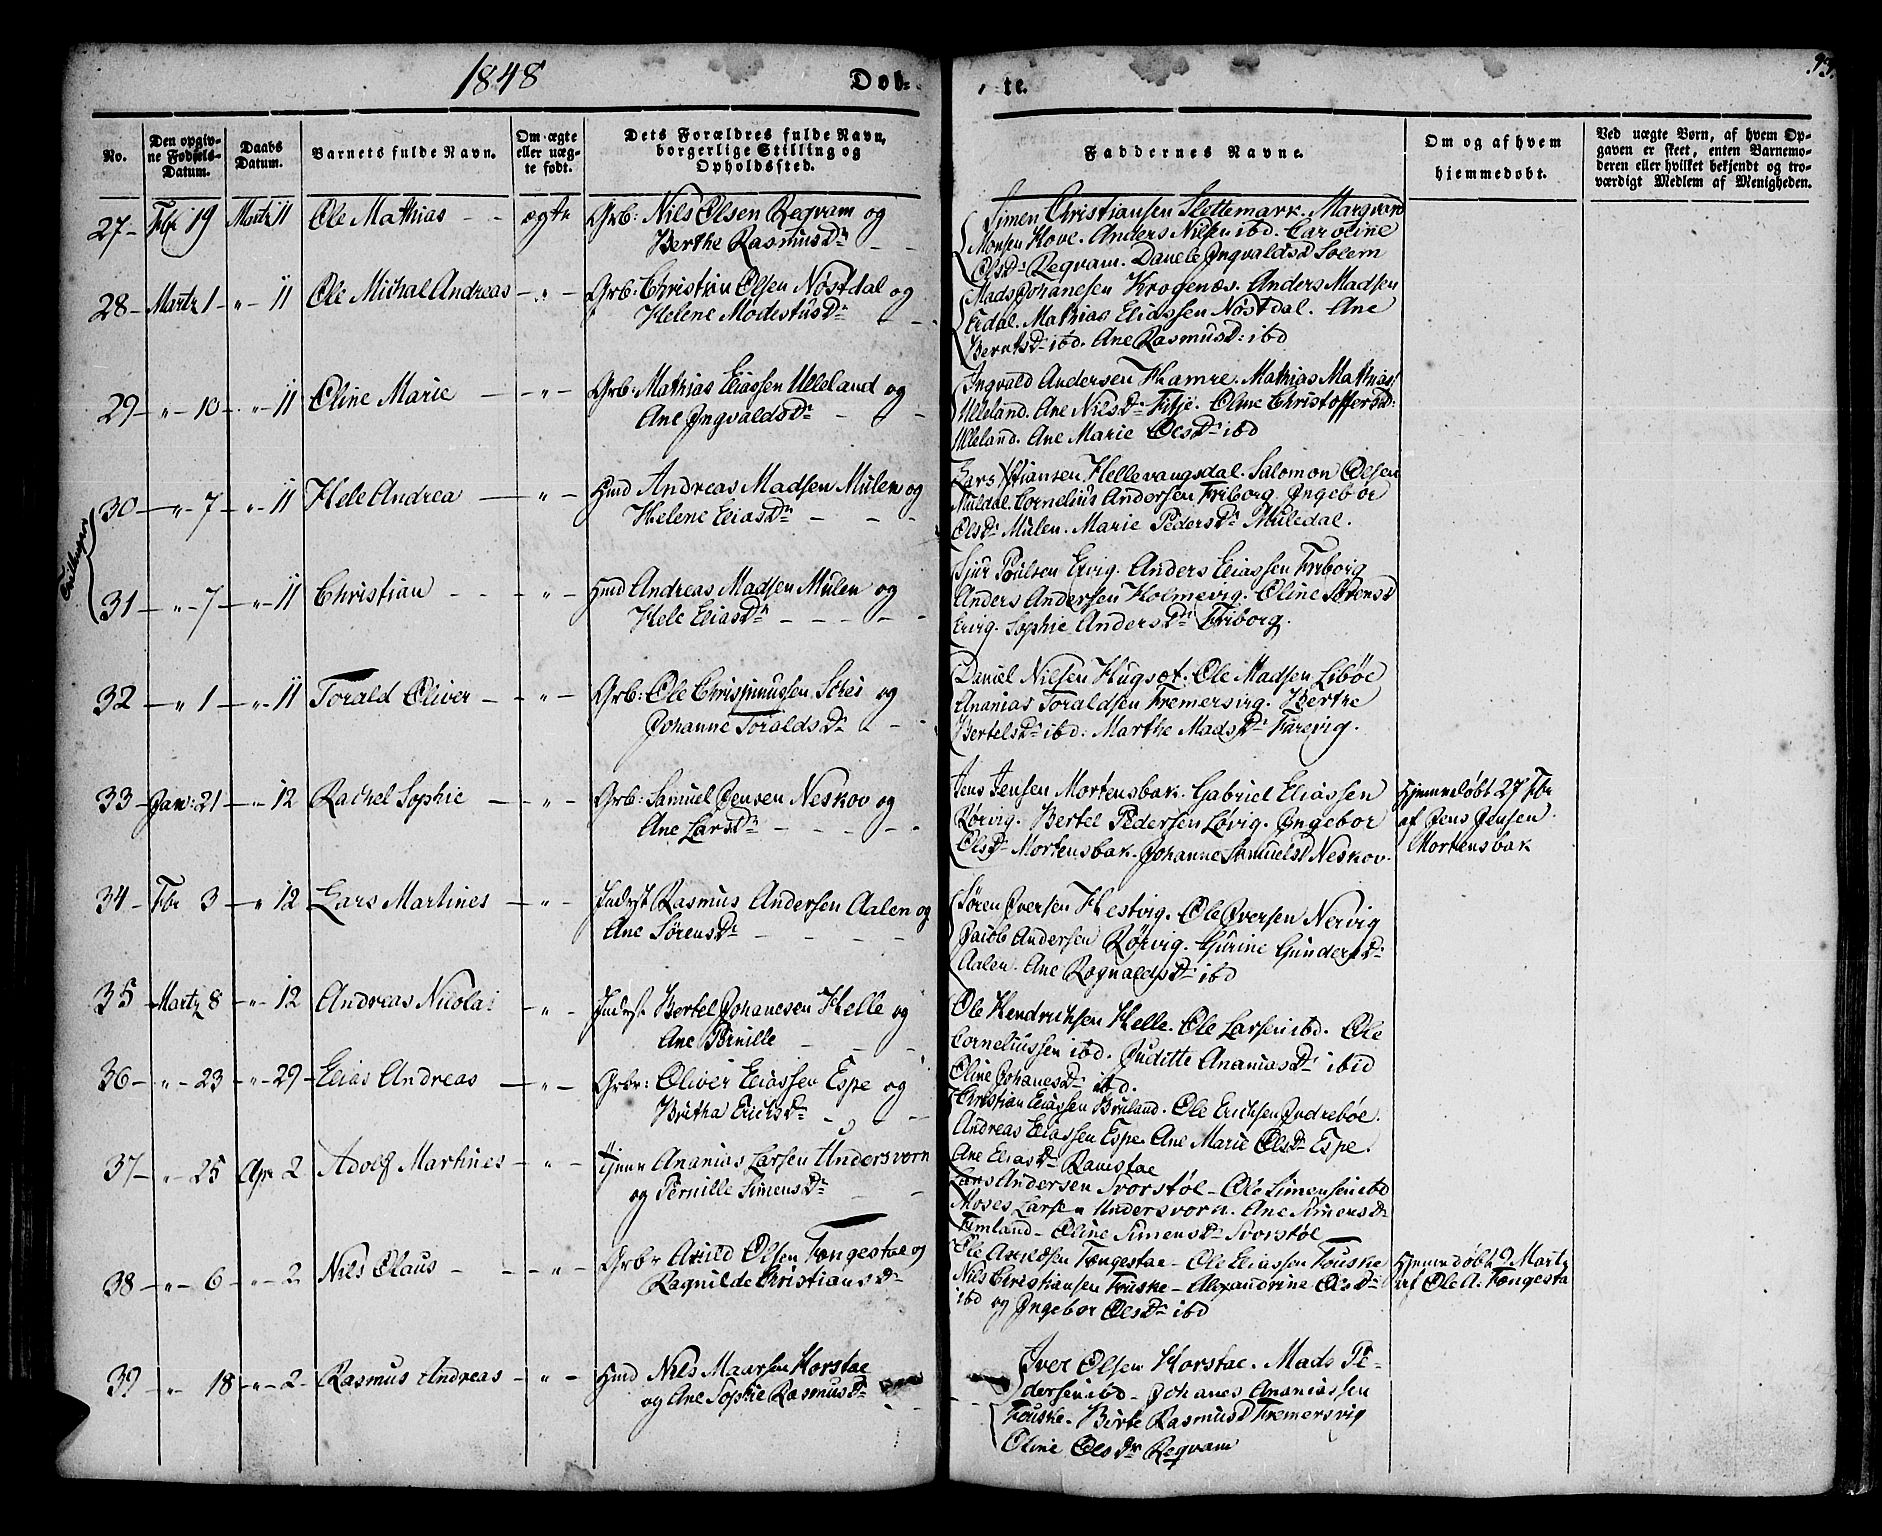 1848
Døb-
te.
93.
No.
Den opgiv-
ne Fødsels-
Datum.
Daabs
Datum.
Barnets fulde Navn.
Om ægte
eller uæg-
te født.
Dets Forældres fulde Navn,
borgerlige Stilling og
Opholdssted.
Faddernes Navne.
Om og af hvem
hjemmedøbt.
Ved uægte Børn, af hvem Op-
gaven er skeet, enten Barnemo-
deren eller hvilket bekjendt og tro-
værdigt Medlem af Menigheden.
27 - Fbr 19 Martz 11 Ole Mathias - - ægte Grb: Nils Olsen Reqvam og
Berthe RasmusDr - -
Simen Christiansen Slettemark. Marqvard
Monsen Hove. Anders Nilsen ibd. Caroline
OlsDr Reqvam. Daněle IngvaldsD Solem
28 - Martz 1 - " - 11 Ole Michal Andreas - " - Grb: Christian Olsen Nøstdal og
Helene ModestusDr - -
Mads Johanesen Krogenæs. Anders Madsen
Erdal. Mathias Eliassen Nøstdal. Ane
BerntsDr ibd. Ane RasmusDr ibd
29 - " - 10 - " - 11 Oline Marie - - " - Grb: Mathias Eliassen Ulleland og
Ane IngvaldsDr - -
Ingvald Andersen Hamre. Mathias Mathias
Ulleland. Ane NilsDr Fitje. Oline ChristoffersD:
Ulleland. Ane Marie OlsDr ibd
Tvillinger
30 - " - 7 - " - 11 Hele Andrea - " - Hmd Andreas Madsen Mulen og
Helene EliasDr - - -
Lars Xtiansen Hellevangsdal. Salomon Olsen
Muldal. Cornelius Andersen Friborg. Ingebøe
OlsDr Mulen. Marie PedersDr Muledal.
31 - " - 7 - " - 11 Christian - - - " - Hmd Andreas Madsen Mulen og
Hele EliasDr - - - - -
Sjur Poulsen Ervig. Anders Eliassen Friborg
Anders Andersen Holmevig. Oline SørensD
Ervig. Sophie AndersDr Friborg.
32 - " 1 - " - 11 Torald Oliver - - " - Grb: Ole Chrisjmnussen Schei og
Johanne ToraldsDr - -
Daniel Nilsen Hugsæt. Ole Madsen Libøe
Ananias Toraldsen Fremersvig. Berthe
BertelsDr ibd: Marthe MadsDr Furevig.
33 - Jan: 21 - " 12 Rachel Sophie - - " - Grb: Samuel Jensen Neskov og
Ane LarsDr - - - - -
Jens Jensen Mortensbak. Gabriel Eliassen
Rørvig. Bertel Pedersen Løvig. Ingebor
OlsDr Mortensbak. Johanne SamuelsD Neskov.
Hjemmedøbt 27 Fbr
af Jens Jensen
Mortensbak
34 - Fbr 3 - " 12 Lars Martines - " - Inderst Rasmus Andersen Aalen og
Ane SørensDr - - - -
Søren Iversen Hestvig. Ole Iversen Nervig
Jacob Andersen Rørvig. Gurine GundersDr
Aalen. Ane RognaldsDr ibd
35 - Martz 8 - " - 12 Andreas Nicolai - " - Inderst Bertel Johanesen Helle og
Ane Pernille - - -
Ole Hendrichsen Helle. Ole Larsen ibd. Ole
Corneliussen ibd. Juditte AnaniasDr ibid
Oline JohanesDr ibd.
36 - " - 23 - " - 29 - Elias Andreas - " - Grbr: Oliver Eliassen Espe og
Britha ErichsDr - - -
Christian Eliassen Bruland. Ole Erichsen Indrebøe.
Andreas Eliassen Espe. Ane Marie OlsDr Espe.
Ane EliasDr Ramstae
37 - " - 25 Apr 2 Adolf Martines - " - Tjener Ananias Larsen Undersvorn
og Pernille SimensDr - -
Lars Andersen Svorstøl - Ole Simensen ibd
Moses Larsen Undersvorn. Ane SimensDr
Timland - Oline SimensDr Svorstøl
38 - " - 6 - " - 2 Nils Olaus - - " - Grbr Arild Olsen Tængestae og
Ragnilde ChristiansDr
Ole Arildsen Tængestae - Ole Eliassen Fouske
Nils Christiansen Fouske - Alexandrine OlsDr
ibd og Ingebor OlsDr ibd
Hjemmedøbt 9 Martz
af Ole A. Tængesta
39 - " - 18 - " - 2 - Rasmus Andreas - " - Hmd Nils Maarsen Horstae
og Ane Sophie RasmusDr
Iver Olsen Horstae. Mads Pe-
dersen ibd - Johanes Ananiassen
Fouske. Birte RasmusD Fremersvig
Oline OlsDr Reqvam